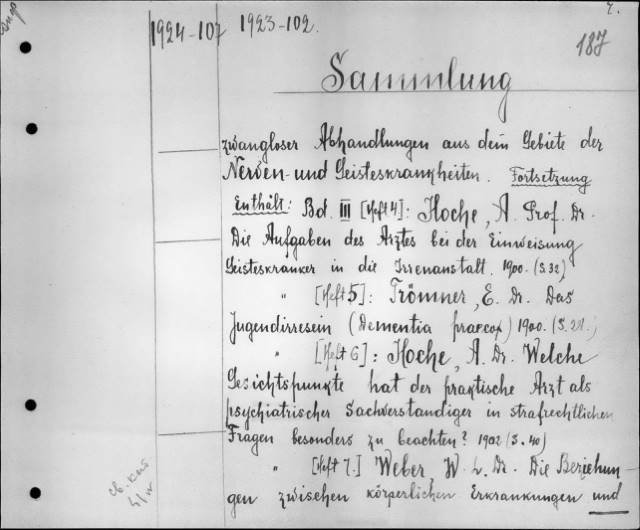 1924-107 1923-102.
187
Sammlung
zwangloser Abhandlungen aus dem Gebiete der
Nerven- und Geisteskrankheiten. Fortsetzung
Enthält: Bd. III [Heft 4]: Hoche, A. Prof. Dr.
Die Aufgaben des Arztes bei der Einweisung
Geisteskranker in die Irrenanstalt. 1900. (S. 32)
" [Heft 5]: Trömner, E. Dr. Das
Jugendirresein (Dementia praecox) 1900. (S. 28.)
" [Heft 6]: Hoche, A. Dr. Welche
Gesichtspunkte hat der praktische Arzt als
psychiatrischer Sachverständiger in strafrechtlichen
Fragen besonders zu beachten? 1902 (S. 40)
" [Heft 7.] Weber, W. L. Dr. Die Beziehun-
gen zwischen körperlichen Erkrankungen und